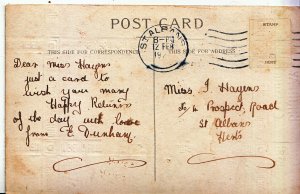 POST CARD
STAMP
HERE
ST ALBANS
12 FEB
THIS SIDE FOR CORRESPONDENCE
THIS SIDE FOR ADDRESS
Dear Miss Hayens
just a card to
wish you many
Happy Returns
of the day with love
from E Dunham.
Miss. I Hayens
Prospect, Road
St Albans
Herts